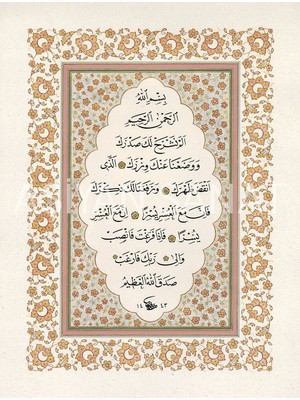 بِسْمِ اللهِ
الرَّحْمٰنِ الرَّحِيمِ
أَلَمْ نَشْرَحْ لَكَ صَدْرَكَ
وَوَضَعْنَا عَنْكَ وِزْرَكَ الَّذِي
أَنْقَضَ ظَهْرَكَ وَرَفَعْنَا لَكَ ذِكْرَكَ
فَإِنَّ مَعَ الْعُسْرِ يُسْرًا إِنَّ مَعَ الْعُسْرِ
يُسْرًا فَإِذَا فَرَغْتَ فَانْصَبْ
وَإِلَى رَبِّكَ فَارْغَبْ
صَدَقَ اللهُ الْعَظِيمُ